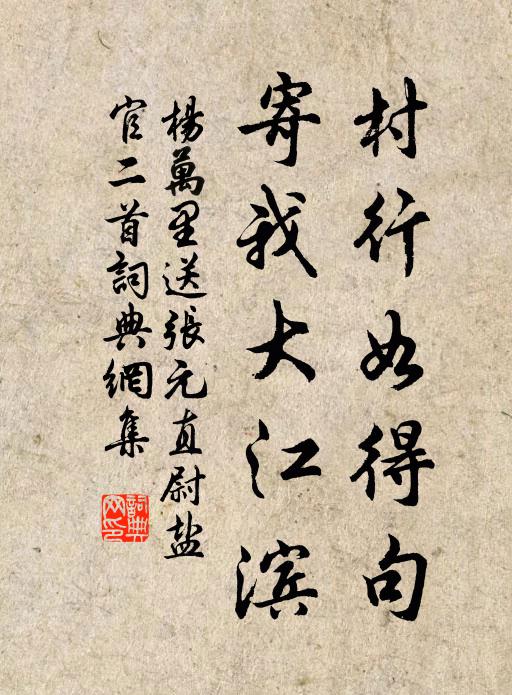 村行如得句
寄我大江滨
楊萬里送張元直尉盐
官二首詞典網集
詞典
网印